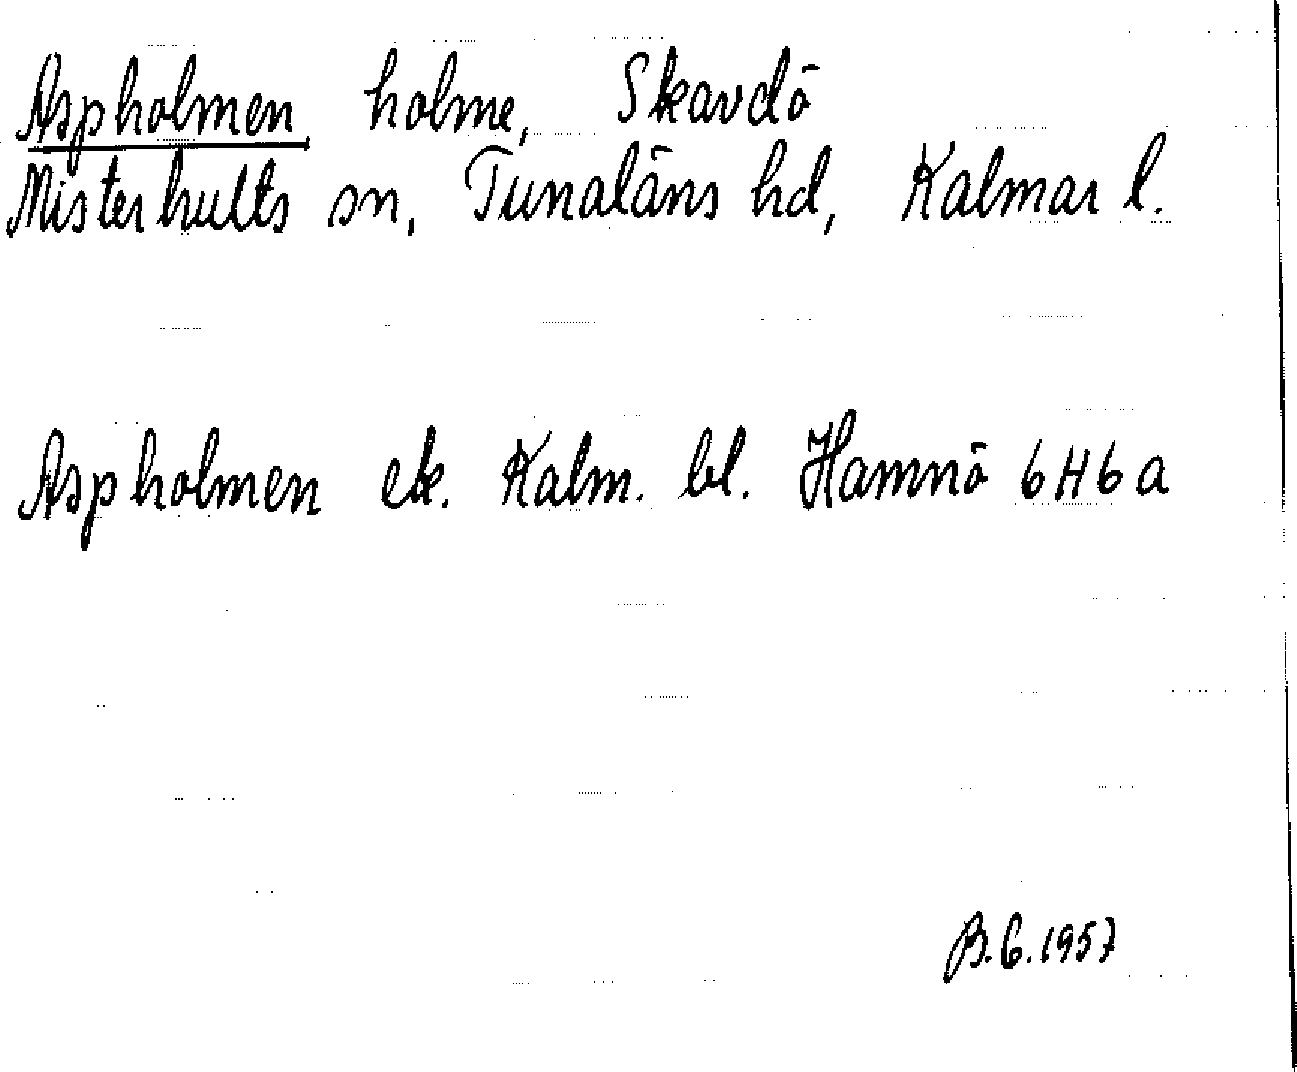 Aspholmen, holme, Skavdö
Misterhults sn, Tunaläns hd, Kalmar l.
Aspholmen ek. Kalm. bl. Hamnö 6H6a
B.G.1957